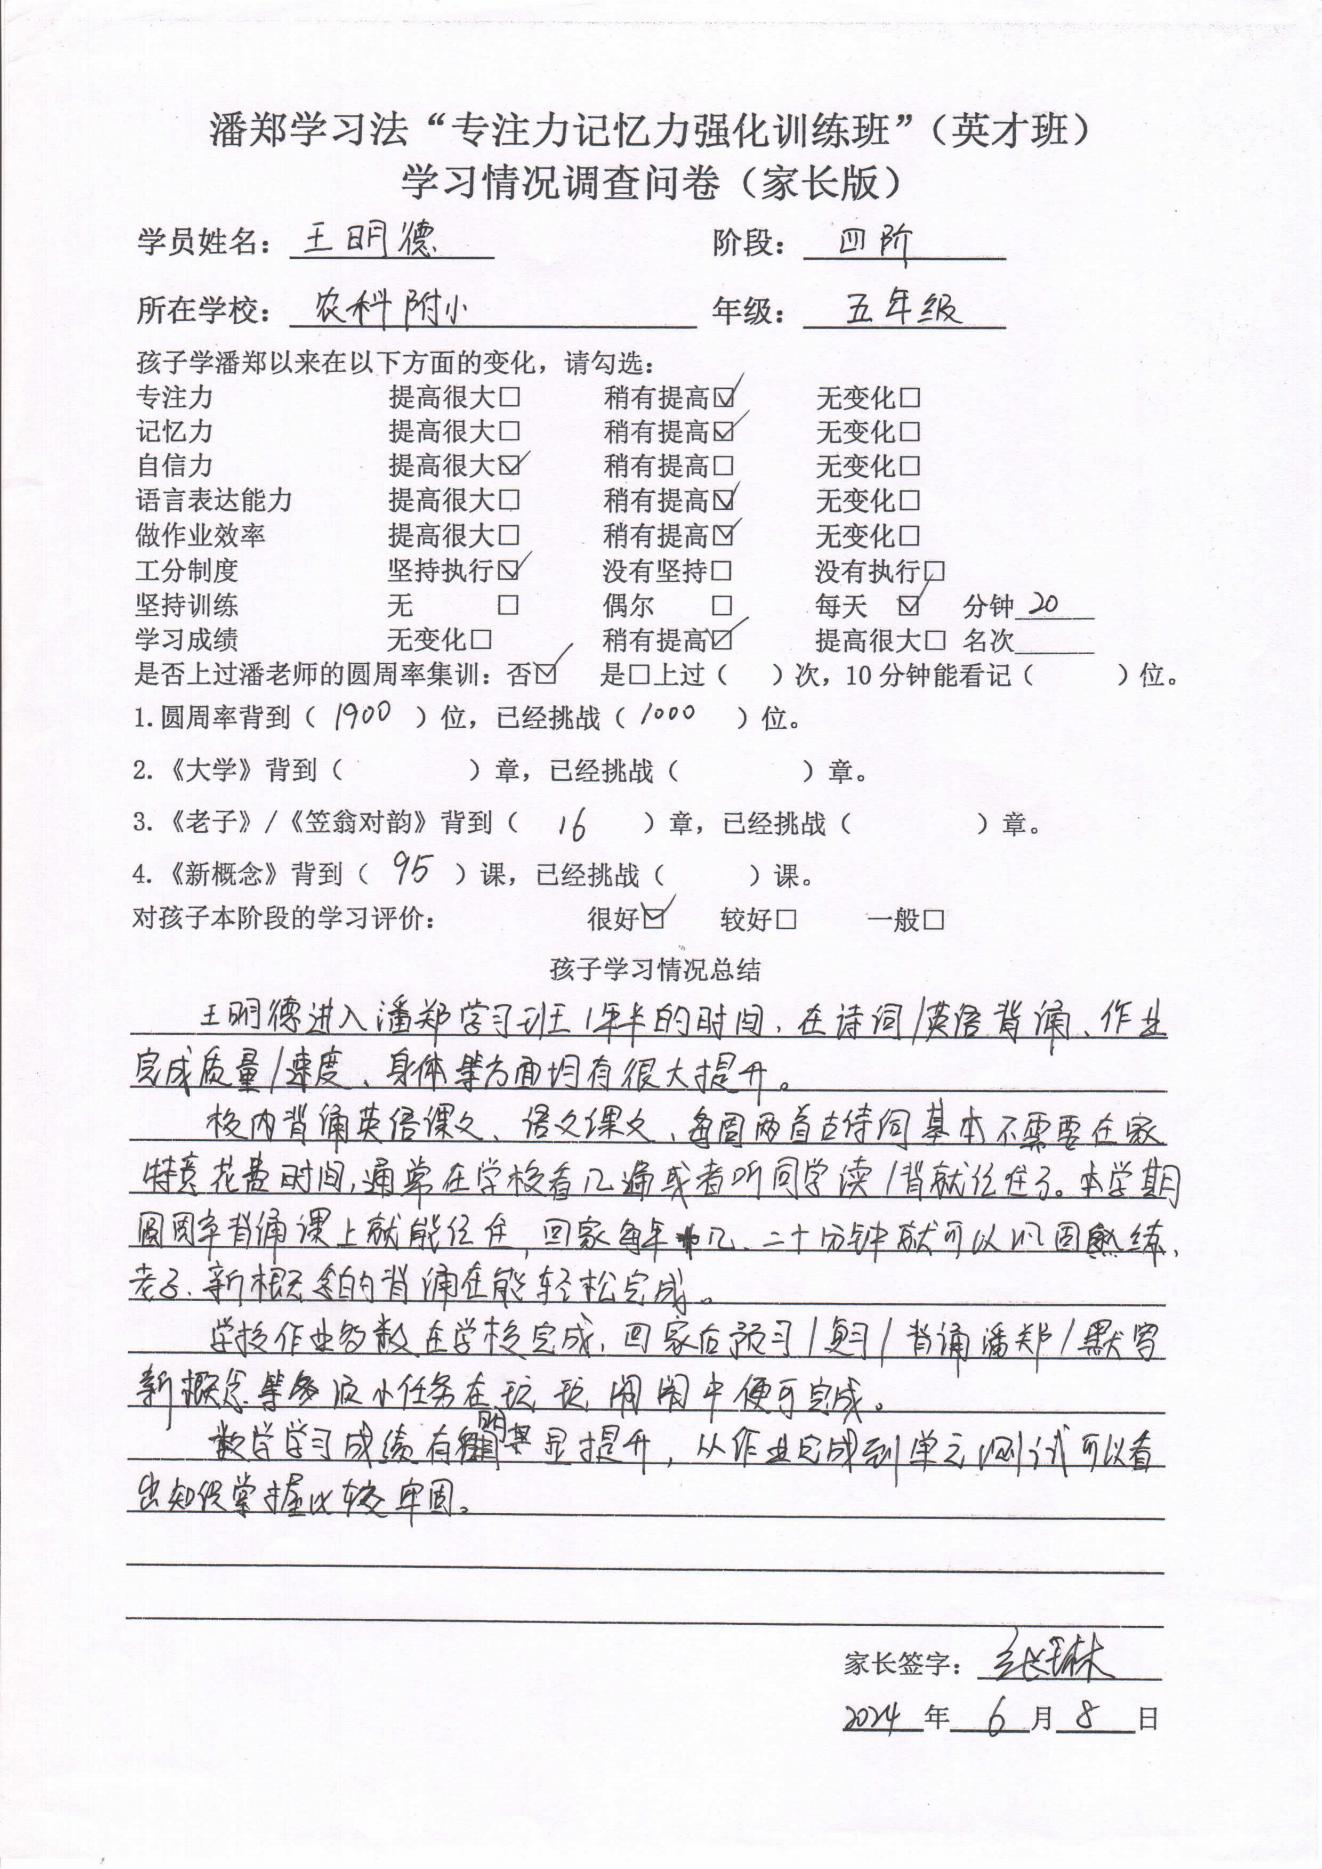 潘郑学习法“专注力记忆力强化训练班”（英才班）
学习情况调查问卷（家长版）
学员姓名：王明德 阶段：四阶
所在学校：农科附小 年级：五年级
孩子学潘郑以来在以下方面的变化，请勾选：
专注力 提高很大□ 稍有提高☑ 无变化□
记忆力 提高很大□ 稍有提高☑ 无变化□
自信力 提高很大☑ 稍有提高□ 无变化□
语言表达能力 提高很大□ 稍有提高☑ 无变化□
做作业效率 提高很大□ 稍有提高☑ 无变化□
工分制度 坚持执行☑ 没有坚持□ 没有执行□
坚持训练 无 □ 偶尔 □ 每天 ☑ 分钟20
学习成绩 无变化□ 稍有提高☑ 提高很大□ 名次
是否上过潘老师的圆周率集训：否☑ 是□上过（ ）次，10分钟能看记（ ）位。
1.圆周率背到（1900）位，已经挑战（1000）位。
2.《大学》背到（ ）章，已经挑战（ ）章。
3.《老子》/《笠翁对韵》背到（16）章，已经挑战（ ）章。
4.《新概念》背到（95）课，已经挑战（ ）课。
对孩子本阶段的学习评价： 很好☑ 较好□ 一般□
孩子学习情况总结
王明德进入潘郑学习班1年半的时间，在诗词/英语背诵、作业
完成质量/速度、身体等方面均有很大提升。
校内背诵英语课文、语文课文、每周两首古诗词基本不需要在家
特意花费时间，通常在学校看几遍或者听同学读/背就记住了。本学期
圆周率背诵课上就能记住，回家每年几、二十分钟就可以巩固熟练，
老子、新概念的背诵在能轻松完成。
学校作业多数在学校完成，回家后预习/复习/背诵潘郑/默写
新概念等多项小任务在玩玩闹闹中便可完成。
数学学习成绩有明显提升，从作业完成到单元测试可以看
出知识掌握比较牢固。
家长签字：
2024年6月8日